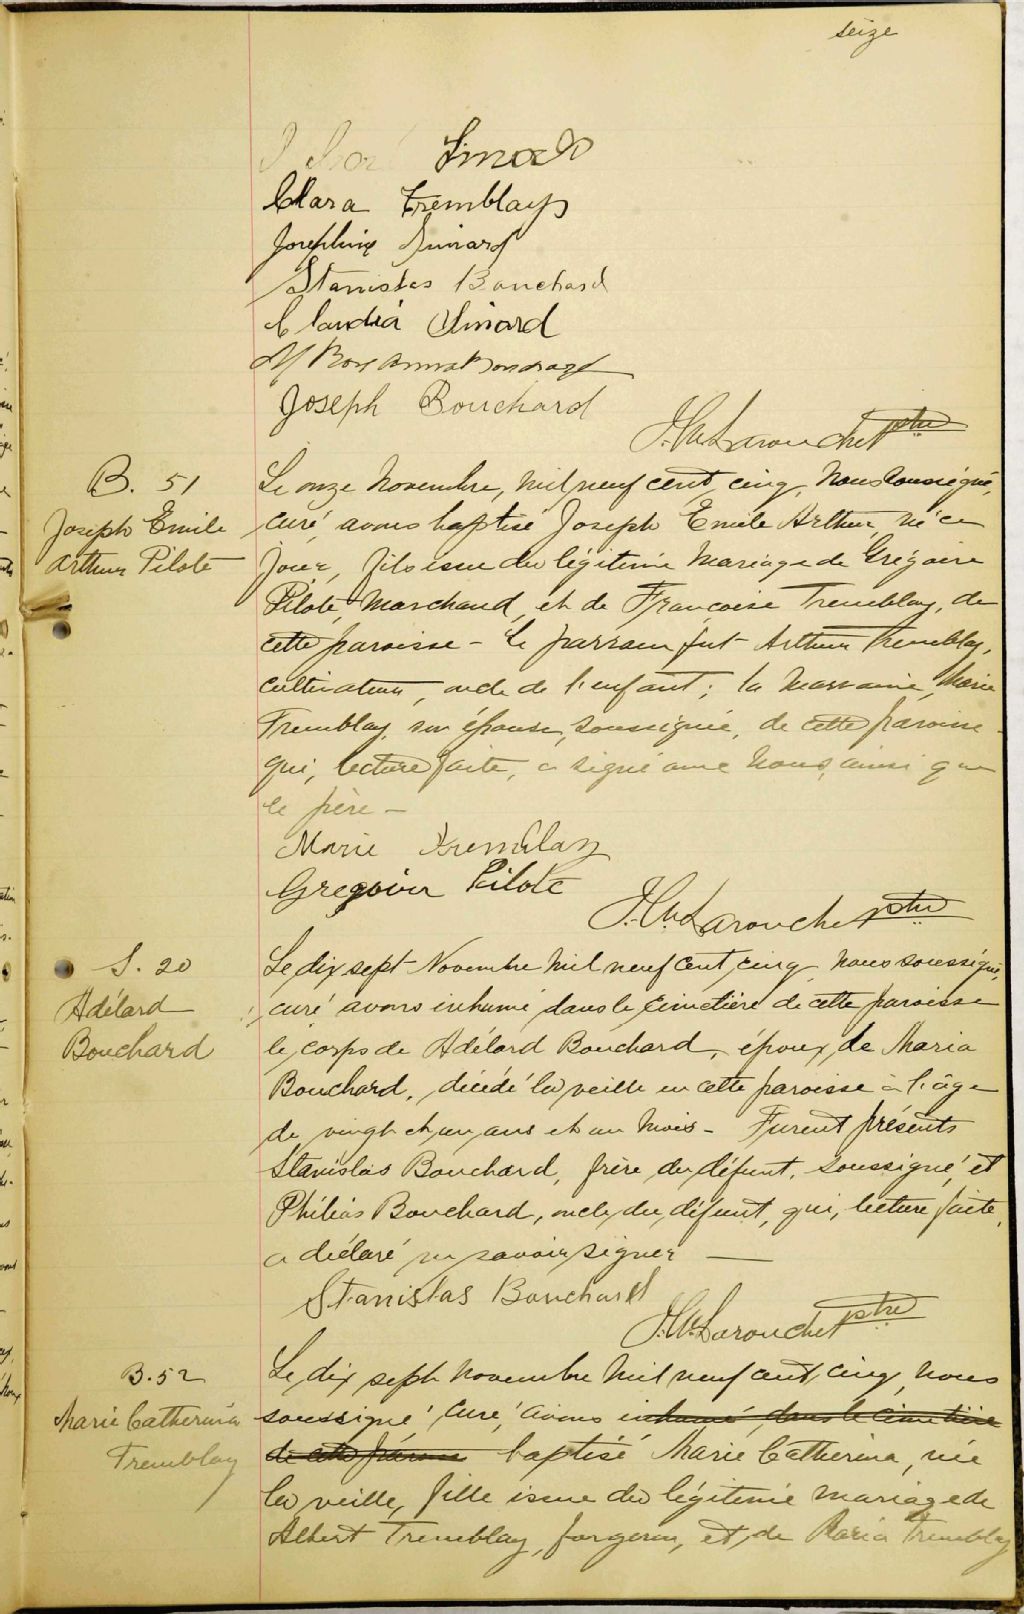 seize
Simard
Clara Tremblay
Josephine Simard
Stanislas Bouchard
Claudia Simard
Joseph Bouchard
Larouche ptre
B. 51
Joseph Emile
Arthur Pilote
Le onze Novembre, mil neuf cent cinq, nous soussigné,
curé, avons baptisé Joseph Emile Arthur, né ce
jour, fils issu du légitime mariage de Grégoire
Pilote, marchand, et de Françoise Tremblay, de
cette paroisse - Le parrain fut Arthur Tremblay,
cultivateur, oncle de l'enfant; la marraine, Marie
Tremblay, son épouse, soussignée, de cette paroisse
qui, lecture faite, a signé avec nous, ainsi que
le père -
Marie Tremblay
Gregoire Pilote
Larouche ptre
S. 20
Adélard
Bouchard
Le dix sept Novembre mil neuf cent cinq nous soussigné,
curé avons inhumé dans le cimetière de cette paroisse
le corps de Adélard Bouchard, époux de Maria
Bouchard, décédé la veille en cette paroisse à l'âge
de vingt et un ans et un mois - Furent présents
Stanislas Bouchard, frère du défunt, soussigné, et
Philias Bouchard, oncle du défunt, qui, lecture faite,
a déclaré ne savoir signer —
Stanislas Bouchard
Larouche ptre
B. 52
Marie Catherina
Tremblay
Le dix sept novembre mil neuf cent cinq, nous
soussigné, curé, avons inhumé dans le cimetière
de cette paroisse baptisé Marie Catherina, née
la veille, fille issue du légitime mariage de
Albert Tremblay, forgeron, et de Maria Tremblay